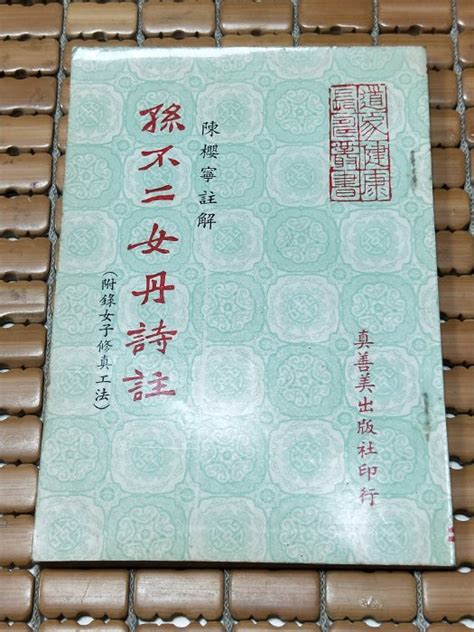 道家健康
長壽叢書
真善美出版社印行
陳櫻寧註解
孫不二女丹詩註
(附錄女子修真工法)